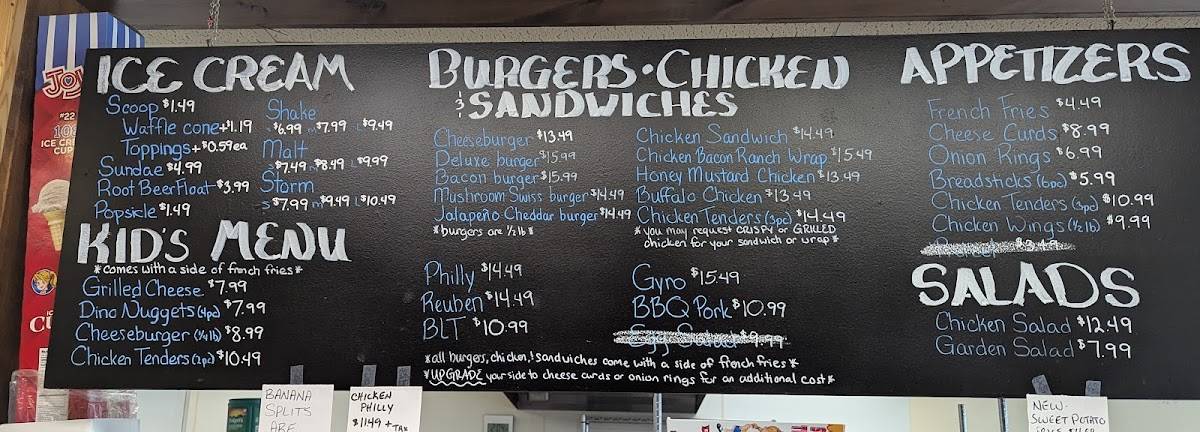 JOY
#22
ICE CREAM
Scoop $1.49
Waffle cone +$1.19
Toppings + $0.59ea
Sundae $4.99
Root Beer Float $3.99
Popsicle $1.49
Shake
$6.99 $7.99 $9.49
Malt
$7.49 $8.49 $9.99
Storm
S $7.99 M $9.49 L $10.49
KID'S MENU
*comes with a side of french fries*
Grilled Cheese $7.99
Dino Nuggets (4pc) $7.99
Cheeseburger (1/4 lb) $8.99
Chicken Tenders (2pc) $10.49
BURGERS • CHICKEN
& SANDWICHES
Cheeseburger $13.49
Deluxe burger $15.99
Bacon burger $15.99
Mushroom Swiss burger $14.49
Jalapeño Cheddar burger $14.49
*burgers are 1/2 lb*
Chicken Sandwich $14.49
Chicken Bacon Ranch Wrap $15.49
Honey Mustard Chicken $13.49
Buffalo Chicken $13.49
Chicken Tenders (3pc) $14.49
*you may request CRISPY or GRILLED
chicken for your sandwich or wrap*
Philly $14.49
Reuben $14.49
BLT $10.99
Gyro $15.49
BBQ Pork $10.99
Egg Salad $9.99
*all burgers, chicken, & sandwiches come with a side of french fries*
*UPGRADE your side to cheese curds or onion rings for an additional cost*
APPETIZERS
French Fries $4.49
Cheese Curds $8.99
Onion Rings $6.99
Breadsticks (6pc) $5.99
Chicken Tenders (3pc) $10.99
Chicken Wings (1/2 lb) $9.99
SALADS
Chicken Salad $12.49
Garden Salad $7.99
BANANA
SPLITS
ARE
CHICKEN
PHILLY
$11.49 + TAX
NEW-
SWEET POTATO